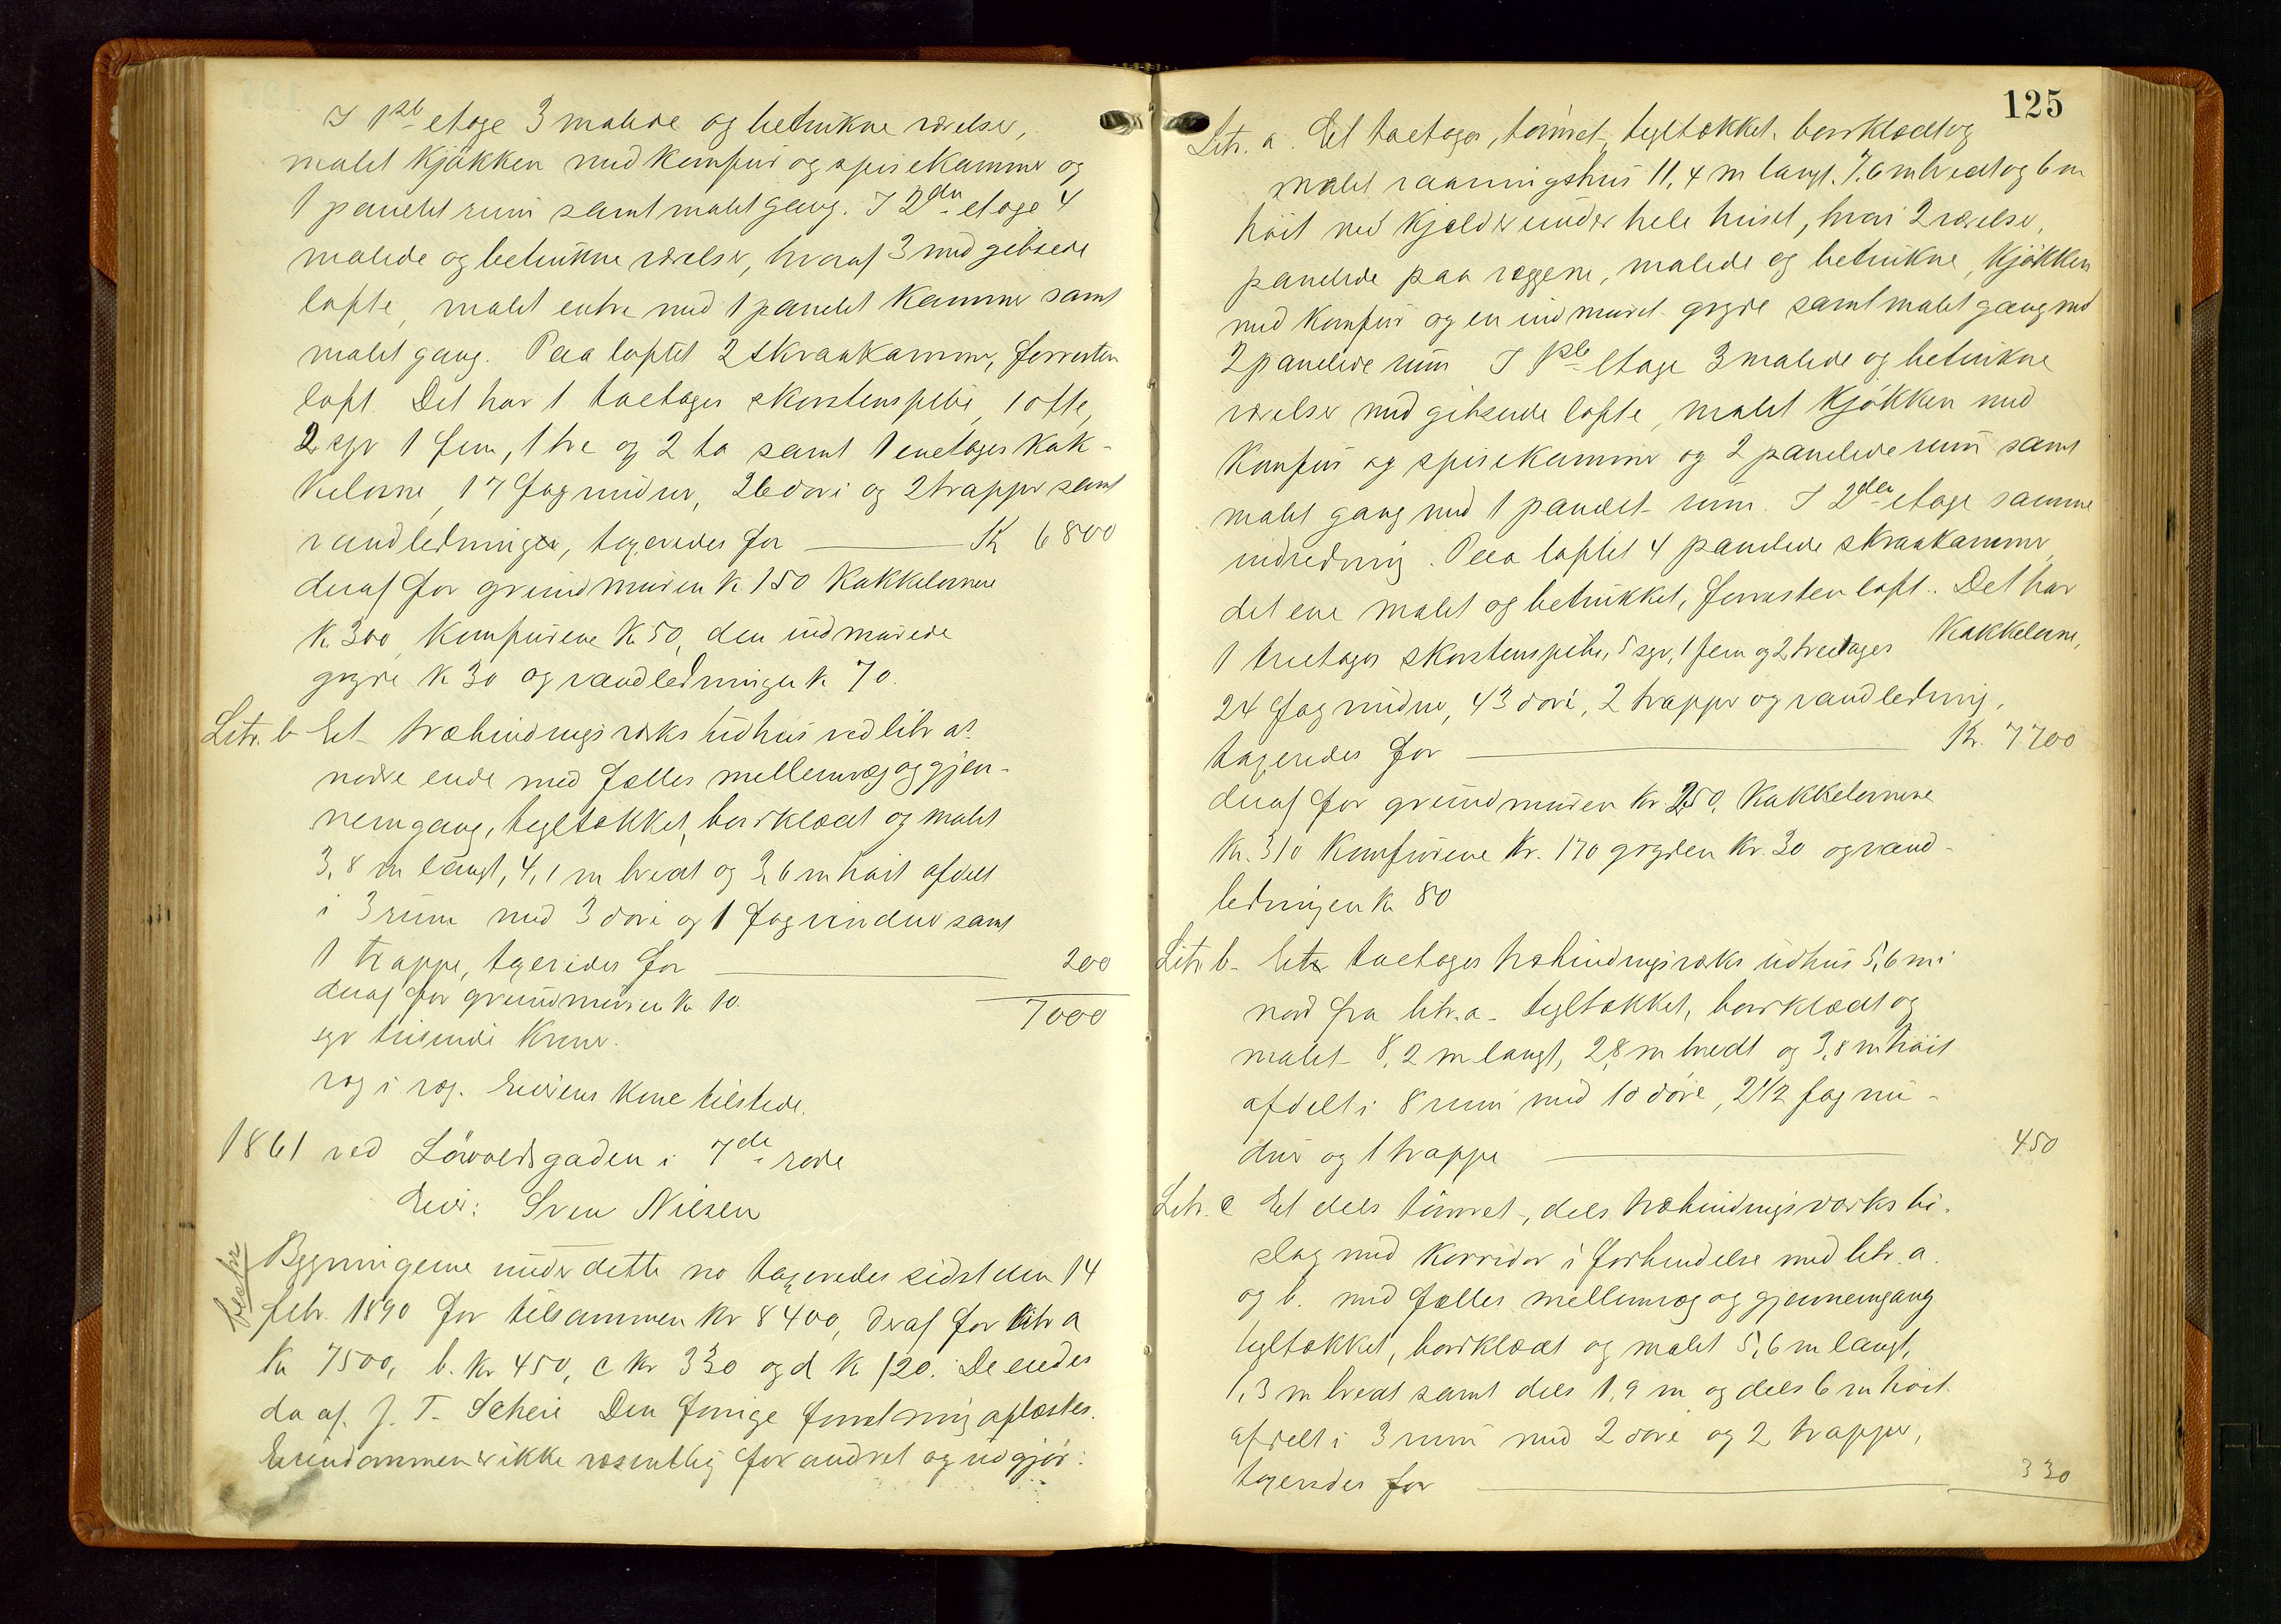 I 1ste etage 3 malede og betrukne værelser,
malet kjøkken med komfur og spisekammer og
1 panelet rum samt malet gang. I 2den etage 4
malede og betrukne værelser, hvoraf 3 med gibsede
lofte, malet entre med 1 panelet kammer samt
malet gang. Paa loftet 2 skraakammer, forresten
loft. Det har 1 toetages skorstenspibe, 1 otte,
2 syv 1 fem, 1 tre og 2 to samt 1 enetages kak-
kelovne, 17 fag vinduer, 26 døre og 2 trapper samt
vandledninger, taxeredes for — K 6800
deraf for grundmuren k 150 kakkelovnene
k. 300, komfurene k. 50, den indmurede
gryde k 30 og vandledningen k 70.
Litr. b Et træbindingsværks udhus ved litr a's
nedre ende med fælles mellemvæg og gjen-
nemgang, tegltækket, bordklædt og malet
3,8 m langt, 4,1 m bredt og 3,6 m høit afdelt
i 3 rum med 3 døre og 1 fag vinduer samt
1 trappe, taxeredes for — 200
deraf for grundmuren k 10.
7000
syv tusende kroner.
væg i væg. Eierens kone tilstede.
1861 ved Løvoldsgaden i 7de rode
Eier: Sven Nilsen
besktr
Bygningerne under dette no taxeredes sidst den 14
febr. 1890 for tilsammen kr 8400, deraf for litr a
kr 7500, b. kr 450, c kr 330 og d k 120. De eiedes
da af J. T. Scheie Den forrige forretning oplæstes.
Eiendommen er ikke væsentlig forandret og udgjør:
125
Litr. a. Et toetages, tømret, tegltækket, bordklædt og
malet vaaningshus 11,4 m langt, 7,6 m bredt og 6 m
høit med kjelder under hele huset, hvori 2 værelser,
panelede paa væggene, malede og betrukne, kjøkken
med komfur og en indmuret gryde samt malet gang med
2 panelede rum I 1ste etage 3 malede og betrukne
værelser med gibsede lofte, malet kjøkken med
komfur og spisekammer og 2 panelede rum samt
malet gang med 1 panelet rum. I 2den etage samme
indredning. Paa loftet 4 panelede skraakammer,
det ene malet og betrukket, forresten loft. Det har
1 treetages skorstenspibe, 5 syv, 1 fem og 2 treetages kakkelovne,
24 fag vinduer, 43 døre, 2 trapper og vandledning,
taxeredes for — Kr. 7700
deraf for grundmuren kr 250, kakkelovnene
kr. 310 komfurene kr. 170 gryden kr. 30 og vand-
ledningen k 80
Litr b. Et toetages træbindingsværks udhus 5,6 m i
nord fra litr. a. tegltækket, bordklædt og
malet 8,2 m langt, 2,8 m bredt og 3,8 m høit
afdelt i 8 rum med 10 døre, 2 1/2 fag vin-
duer og 1 trappe — 450
Litr. c Et dels tømret, dels træbindingsværks bi-
slag med korridor i forbindelse med litr. a.
og b. med fælles mellemvæg og gjennemgang
tegltækket, bordklædt og malet 5,6 m langt,
1,3 m bredt samt dels 1,9 m og dels 6 m høit.
afdelt i 3 rum med 2 døre og 2 trapper,
taxeredes for — 330